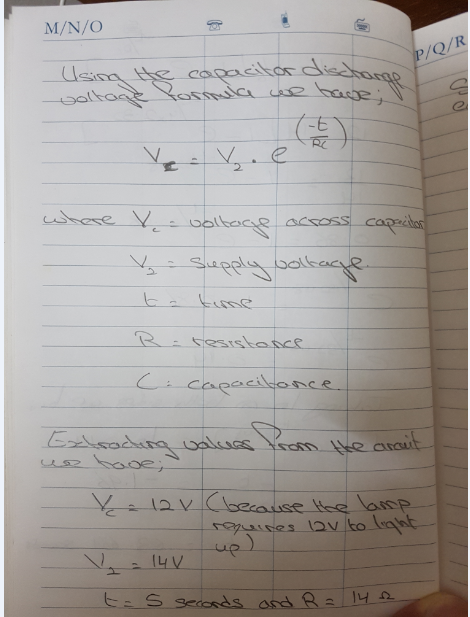 M/N/O
P/Q/R
Using the capacitor discharge
voltage formula we have;
Vc = V2 . e^(-t/RC)
where Vc = voltage across capacitor
V2 = supply voltage.
t = time
R = resistance
C = capacitance.
Extracting values from the circuit
we have;
Vc = 12V (because the lamp
requires 12V to light
up)
V2 = 14V
t = 5 seconds and R = 14 Ω